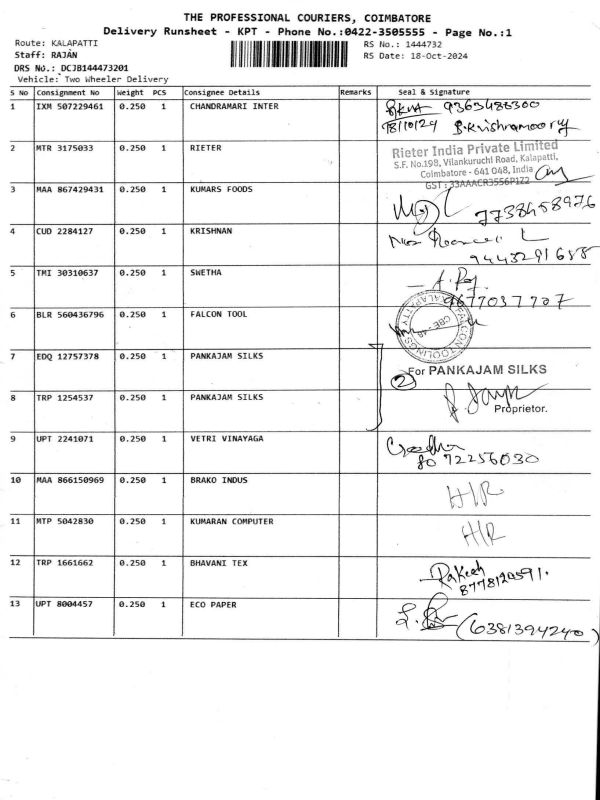 THE PROFESSIONAL COURIERS, COIMBATORE
Delivery Runsheet - KPT - Phone No.:0422-3505555 - Page No.:1
Route: KALAPATTI
RS No.: 1444732
Staff: RAJAN
RS Date: 18-Oct-2024
DRS No.: DCJB144473201
Vehicle: Two Wheeler Delivery
S No Consignment No Weight PCS Consignee Details Remarks Seal & Signature
1 IXM 507229461 0.250 1 CHANDRAMARI INTER
18/10/24 B.Krishnamoorthy
2 MTR 3175033 0.250 1 RIETER
Rieter India Private Limited
S.F. No.198, Vilankuruchi Road, Kalapatti,
Coimbatore - 641 048, India
GST : 33AAACR3556P1Z2
3 MAA 867429431 0.250 1 KUMARS FOODS
7738458976
4 CUD 2284127 0.250 1 KRISHNAN
9443291688
5 TMI 30310637 0.250 1 SWETHA
9677037707
6 BLR 560436796 0.250 1 FALCON TOOL
FALCON TOOLINGS
KALAPATTY
CBE-48
7 EDQ 12757378 0.250 1 PANKAJAM SILKS
2 For PANKAJAM SILKS
8 TRP 1254537 0.250 1 PANKAJAM SILKS
Proprietor.
9 UPT 2241071 0.250 1 VETRI VINAYAGA
80 72256030
10 MAA 866150969 0.250 1 BRAKO INDUS
H/R
11 MTP 5042830 0.250 1 KUMARAN COMPUTER
H/R
12 TRP 1661662 0.250 1 BHAVANI TEX
Rakesh
13 UPT 8004457 0.250 1 ECO PAPER
(6381394240)